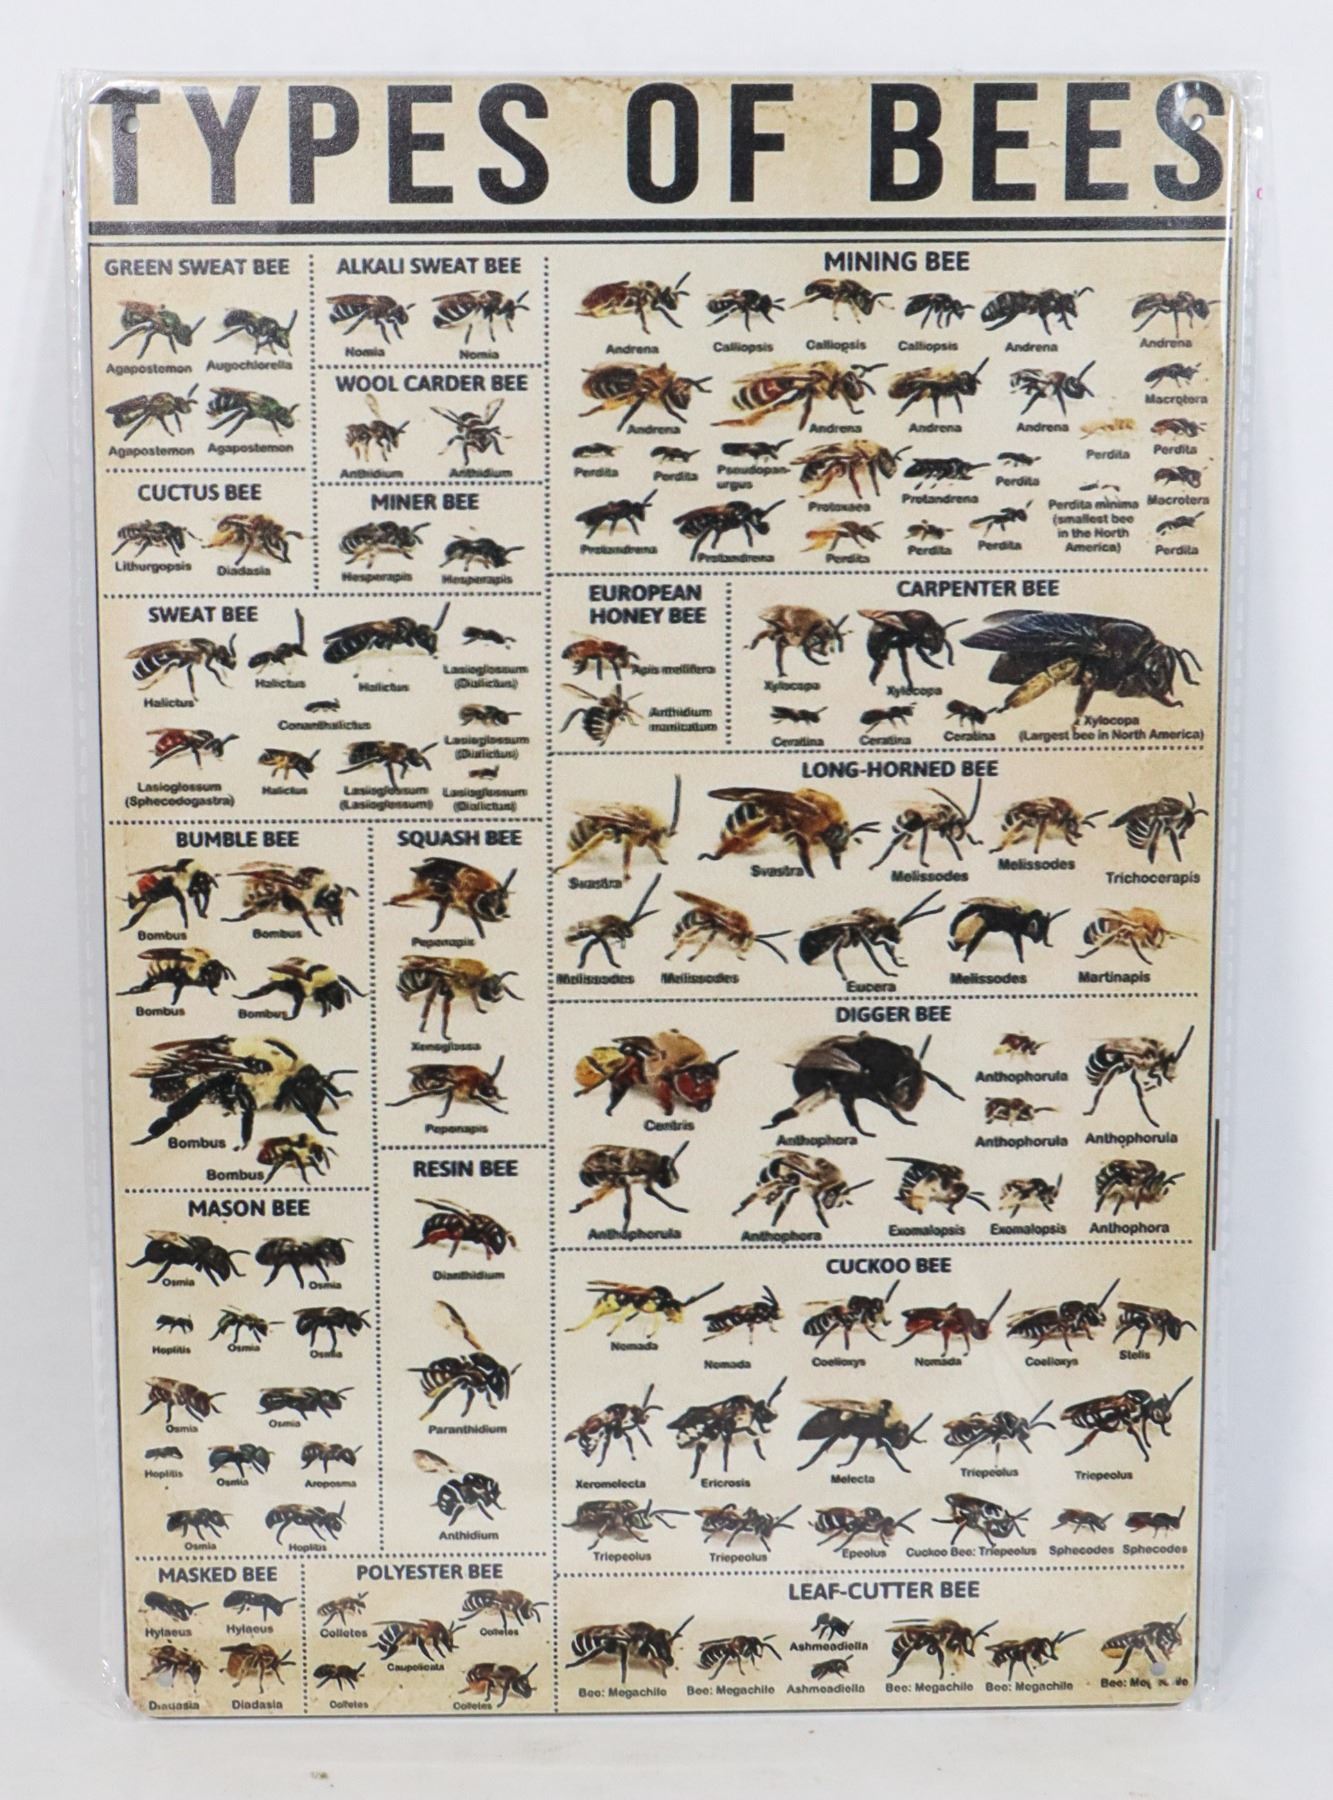 TYPES OF BEES
GREEN SWEAT BEE
Agapostemon Augochlorella
Agapostemon Agapostemon
ALKALI SWEAT BEE
Nomia Nomia
WOOL CARDER BEE
Anthidium Anthidium
CUCTUS BEE
Lithurgopsis Diadasia
MINER BEE
Hesperapis Hesperapis
MINING BEE
Andrena Calliopsis Calliopsis Calliopsis Andrena Andrena
Macrotera
Andrena Andrena Andrena Andrena Perdita Perdita
Perdita Perdita Pseudopan-
urgus
Protoxaea Protandrena Perdita
Perdita minima
(smallest bee
in the North
America)
Macrotera
Protandrena Protandrena Perdita Perdita Perdita Perdita
SWEAT BEE
Halictus Halictus Halictus
Lasioglossum
(Dialictus)
Conanthalictus
Lasioglossum
(Dialictus)
Lasioglossum
(Sphecodogastra)
Halictus
Lasioglossum
(Lasioglossum)
Lasioglossum
(Dialictus)
EUROPEAN
HONEY BEE
Apis mellifera
Anthidium
manicatum
CARPENTER BEE
Xylocopa Xylocopa
Ceratina Ceratina Ceratina
Xylocopa
(Largest bee in North America)
LONG-HORNED BEE
Svastra Svastra Melissodes Melissodes Trichocerapis
Melissodes Melissodes Eucera Melissodes Martinapis
BUMBLE BEE
Bombus Bombus
Bombus Bombus
Bombus
Bombus
SQUASH BEE
Peponapis
Xenoglossa
Peponapis
DIGGER BEE
Centris Anthophora Anthophorula Anthophorula Anthophorula
Anthophorula Anthophora Exomalopsis Exomalopsis Anthophora
MASON BEE
Osmia Osmia
Hoplitis Osmia Osmia
Osmia Osmia
Hoplitis Osmia Aroposma
Osmia Hoplitis
RESIN BEE
Dianthidium
Paranthidium
Anthidium
CUCKOO BEE
Nomada Nomada Coelioxys Nomada Coelioxys Stelis
Xeromelecta Ericrosis Melecta Triepeolus Triepeolus
Triepeolus Triepeolus Epeolus Cuckoo Bee: Triepeolus Sphecodes Sphecodes
MASKED BEE
Hylaeus Hylaeus
Diadasia Diadasia
POLYESTER BEE
Colletes Caupolicata Colletes
Colletes Colletes
LEAF-CUTTER BEE
Ashmeadiella
Bee: Megachile Bee: Megachile Ashmeadiella Bee: Megachile Bee: Megachile Bee: